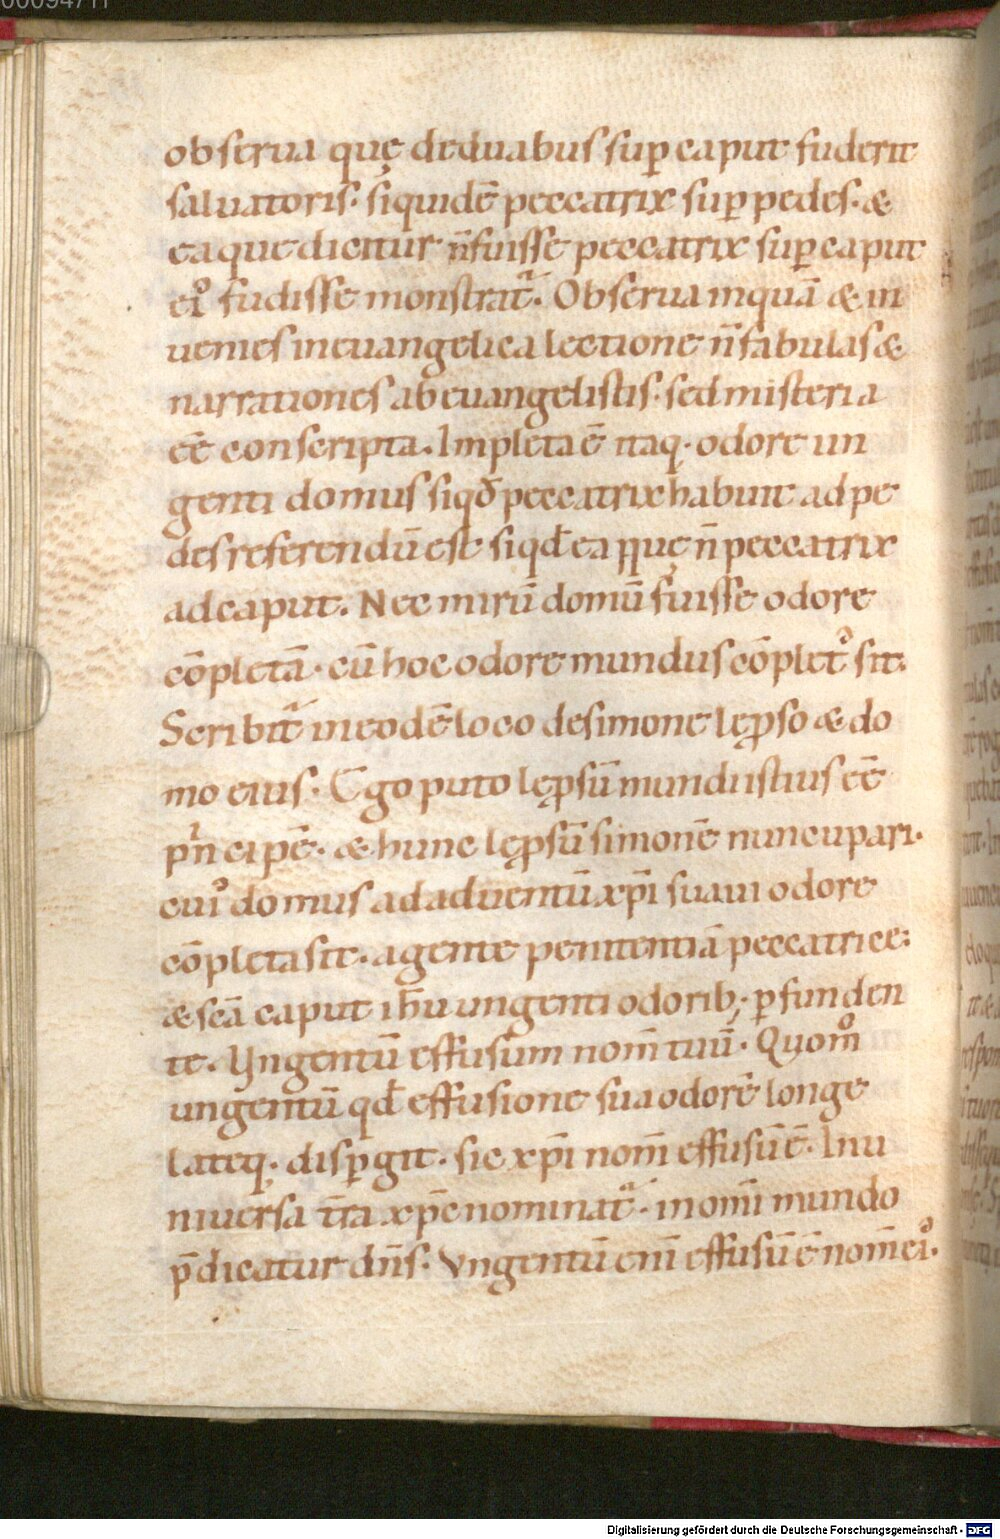 00094711
obserua quę deduabus sup̱ caput fuderit
saluatoris· siquidē peccatrix sup̱ pedes· &
eaque dicitur n̄fuisse peccatrix sup̱ caput
eiꝰ fudisse monstrat᷑· Obserua inquā & in
uenies ineuangelica lectione n̄fabulas &
narrationes abeuangelistis· sed misteria
eē conscripta. Impleta ē itaq· odore un
genti domus siqđ peccatrix habuit adpe
des referendū est siqđ ea q̨quę n̄ peccatrix
adcaput. Nec mirū domū fuisse odore
cōpletā· cū hoc odore mundus cōpletꝰ sit.
Scribit᷑ ineodē loco desimone lep̱so & do
mo eius· Ego puto lep̱sū mundi istius eē
pͥncipē· & hunc lep̱sū simonē nuncupari·
cuiꝰ domus adaduentū xp̄i suaui odore
cōpleta sit. agente penitentiā peccatrice:
& scā caput ih̄u ungenti odorib; p̱funden
te. Ungentū effusum nom̄ tuū· Quomͦ
ungentū qđ effusione sua odorē longe
lateq· disp̱git· sic xp̄i nom̄ effusū ē· Inu
niuersa t̄ra xp̄c nominat᷑· inomi mundo
p̄dicatur dn̄s· Vngentū eni effusū ē nom̄ eiꝰ·
Digitalisierung gefördert durch die Deutsche Forschungsgemeinschaft - DFG